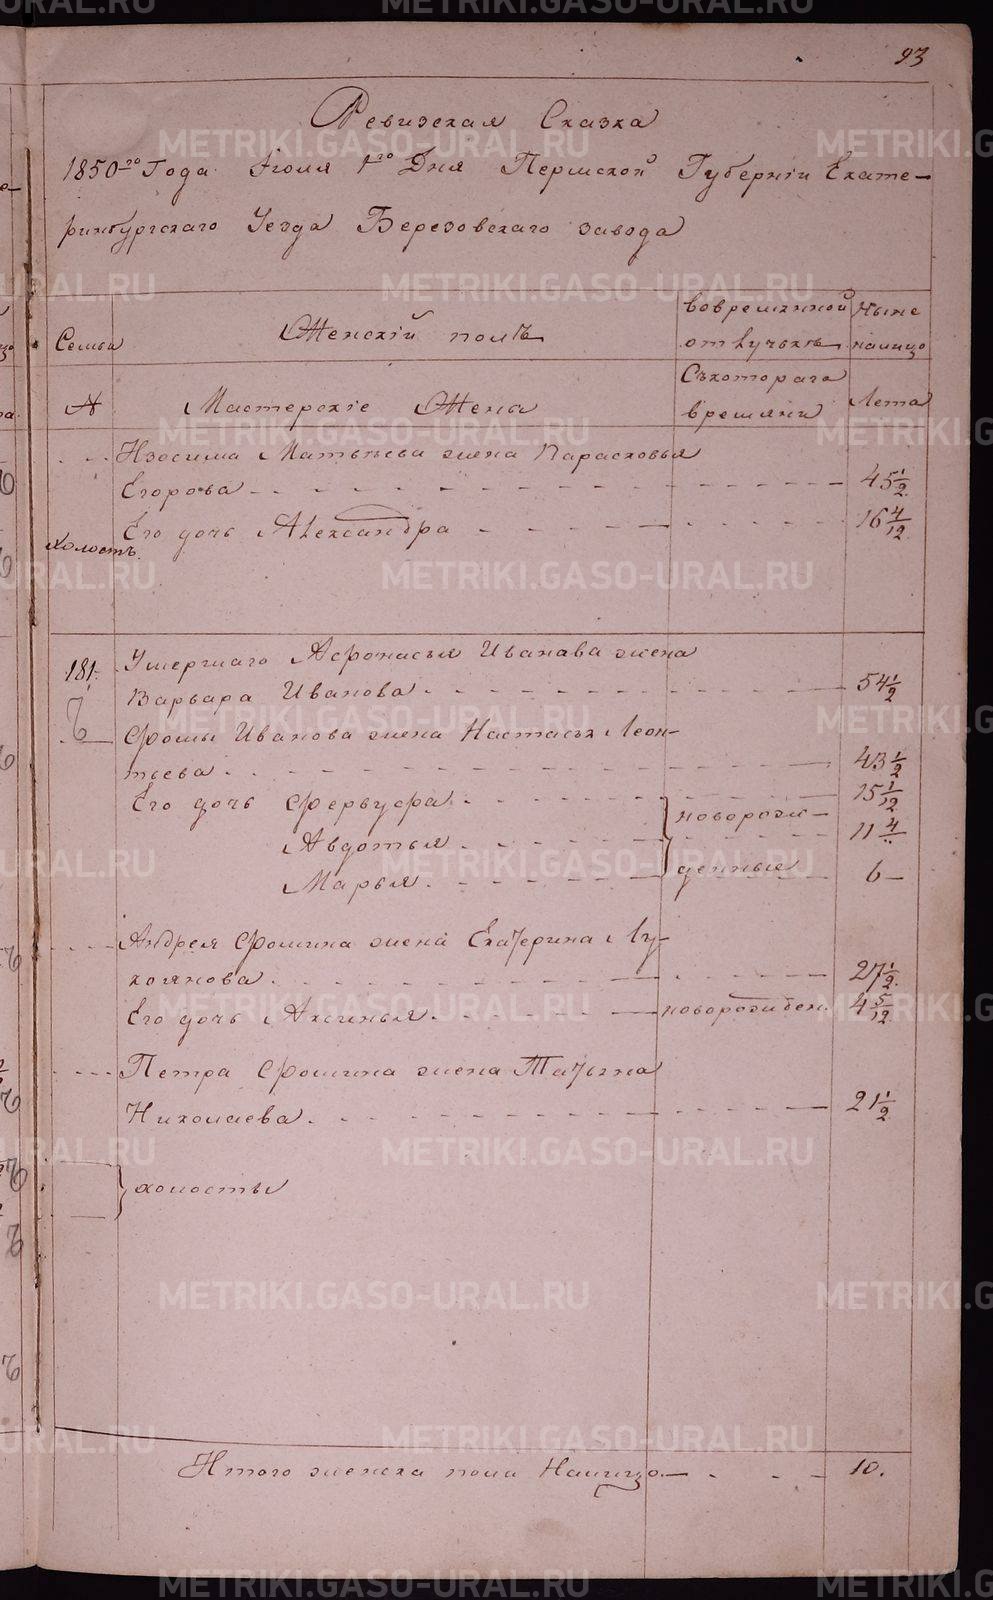 93
Ревизская Сказка
1850го Года Iюля 1го Дня Пермской Губернiи Екате-
ринбургскаго Уезда Березовскаго завода
Семьи
Женскiй полъ
вовременной
отлучькѣ
Ныне
налицо
№
Мастерскiе Жена
Съкотораго
времяни
Лета
Изосима Матьвѣева жена Парасковья
Егорова 45 1/2
Холостъ.
Его дочь Александра 16 4/12
181.
Умершаго Афонасья Иванава жена
Варьвара Иванова 54 1/2
Фомы Иванова жена Настасья Леон-
тьева 43 1/2
Его дочь Фервуфа 15 1/12
новорож-
Авдотья 11 4/"
денные
Марья 6 —
Андрея Фомина жена Екатерина Лу-
коянова 27 1/2
Его дочь Аксинья новорожден. 4 5/12
Петра Фомина жена Татьяна
Николаева 21 1/2
холосты
Итого женска пола Налицо 10.
METRIKI.GASO-URAL.RU